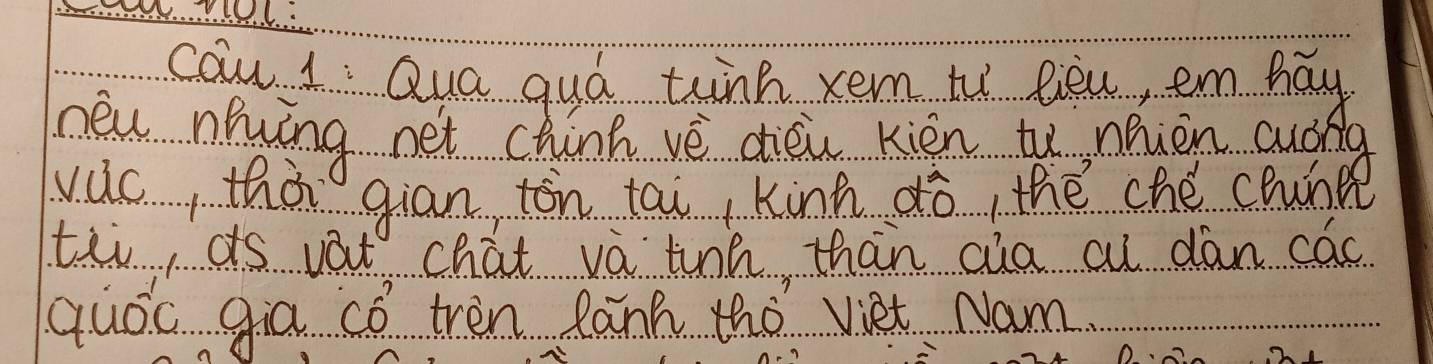 Câu 1: Qua quá trình xem tư liệu, em hãy
nêu những nét chính về điều kiện tự nhiên cương
vực, thời gian, tồn tại, kinh đô, thể chế chính
trị, đs vật chất và tinh thần của cư dân các
quốc gia cổ trên lãnh thổ Việt Nam.